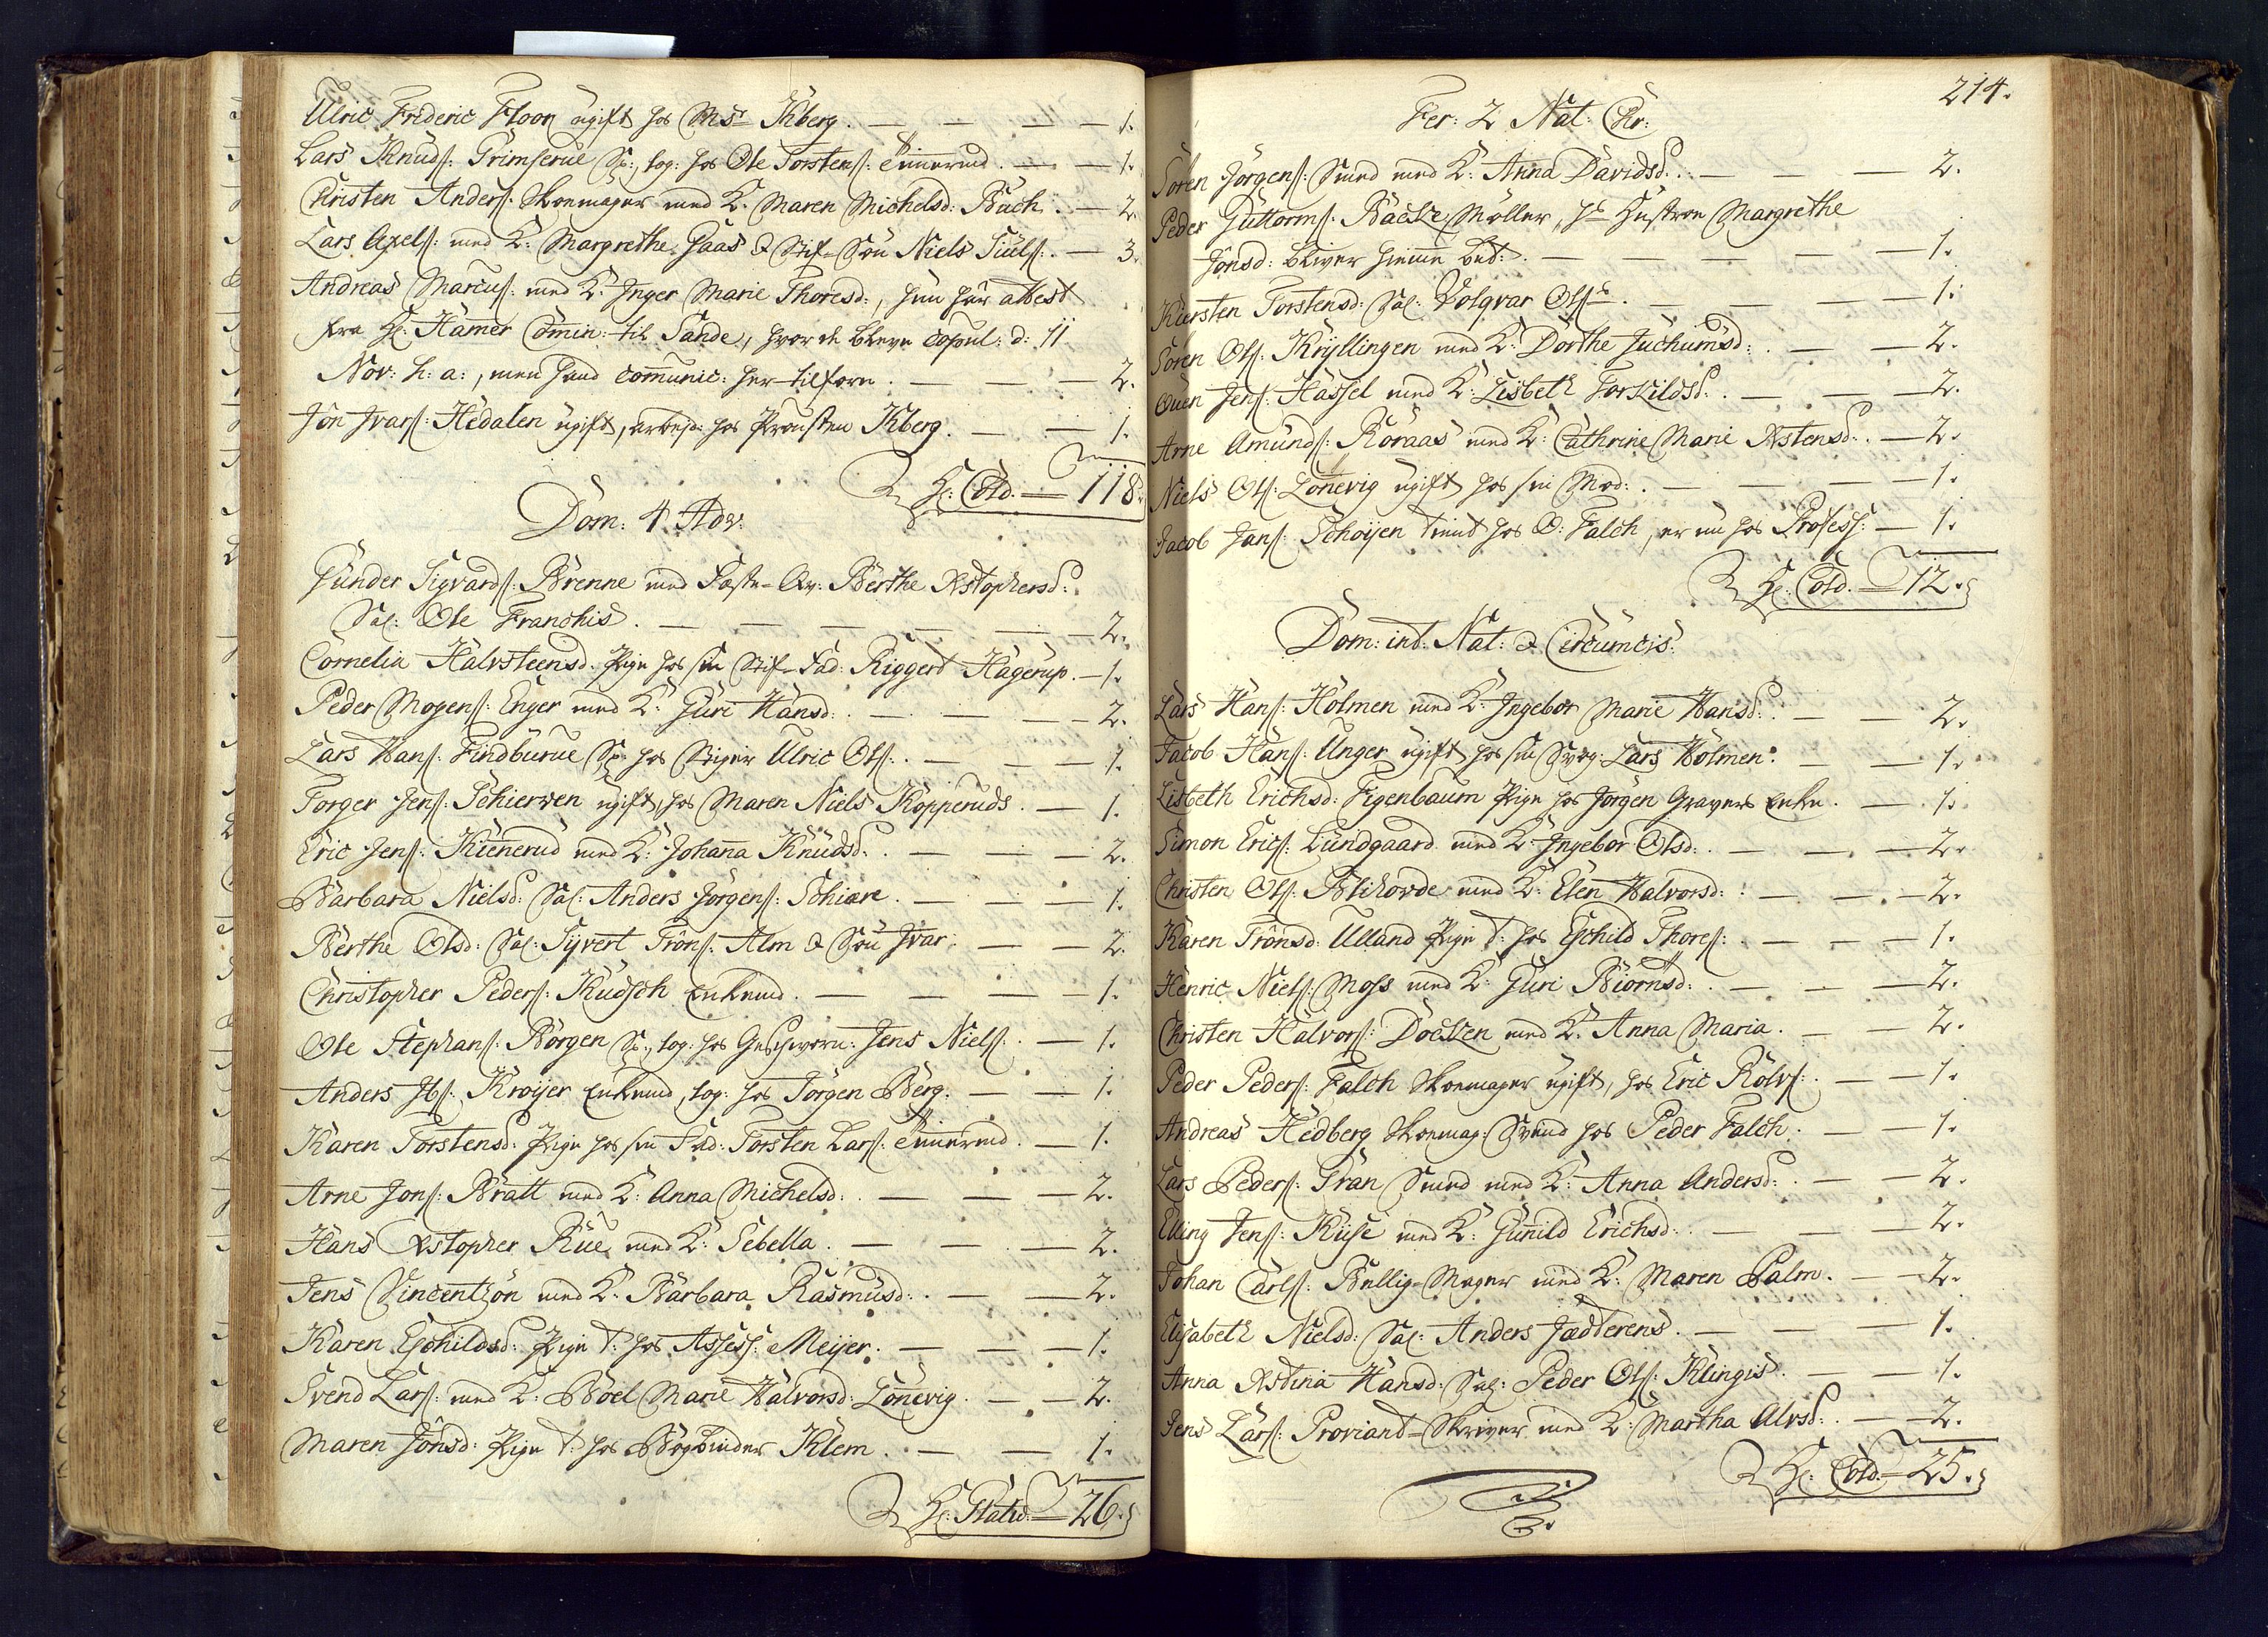 Ulric Frideric Floor ugift hos Mst Kberg. — 1.
Lars Knuds: Grimserue Sv:, log: hos Ole Torstens: Emmerud. — 1.
Christen Anders: Skomager med K: Maren Michelsd: Buch. — 2.
Lars Axels: med K: Margrethe Haas & Stif-Søn Niels Juels: — 3.
Andreas Marcus: med K: Inger Marie Thoresd:, hun har attest
fra H: Hamer Comin: til Sande, hvor de bleve copul: d: 11
Nov: h: a:, men hand communic: her tilforn. — 2.
Jon Ivars: Hedalen ugift, arbejd: hos Prousten Kberg. — 1.
H: Cold. — 118.
Dom: 4 Adv:
Gunder Sigvards: Brenne med Fæste-Qv: Berthe Xstophersd:
Sal: Ole Franchis. — 2.
Cornelia Halvsteensd: Pige hos sin Stif-Fad: Riggert Hagerup. — 1.
Peder Mogens: Enger med K: Guri Hansd: — 2.
Lars Hans: Findburue Sv: hos Stiger Ulric Ols: — 1.
Torger Jens: Schierven ugift, hos Maren Niels Kopperuds. — 1.
Eric Jens: Kiennerud med K: Johanna Knudsd: — 2.
Barbara Nielsd: Sal: Anders Jørgens: Schiare. — 1.
Berthe Olsd: Sal: Syvert Trons: Alm & Søn Ivar. — 2.
Christopher Peders: Kudsch Enkemd. — 1.
Ole Stephans: Børgen Sv:, log: hos Geschworn: Jens Niels: — 1.
Anders Ibs: Krøyer Enkemd, log: hos Jørgen Berg. — 1.
Karen Torstensd: Pige hos sin Fad: Torsten Lars: Emmerud. — 1.
Arne Jons: Bratt med K: Anna Michelsd: — 2.
Hans Xstopher Rue med K: Sebella. — 2.
Jens Vincentzøn med K: Barbara Rasmusd: — 2.
Karen Eschildsd: Pige t: hos Assess: Meijer. — 1.
Svend Lars: med K: Boel Marie Halvorsd: Lønevig. — 2.
Maren Jonsd: Pige t: hos Bogbinder Klem. — 1.
H: Statv: — 26.
214.
Fer: 2 Nat: Chr:
Søren Jørgens: Smed med K: Anna Davidsd: — 2.
Peder Guttorms: Bache Møller, hs Hustroe Margrethe
Jonsd: bliver hiemme bet: — 1.
Kiersten Torstensd: Sal: Volqvar Ols: — 1.
Søren Ols: Kryllingen med K: Dorthe Juchumsd: — 2.
Ouen Jens: Hassel med K: Lisbeth Torkildsd: — 2.
Arne Amunds: Røraas med K: Cathrine Marie Xstensd: — 2.
Niels Ols: Lønevig ugift hos sin Mod: — 1.
Jacob Jans: Schøijen tient hos O: Falch, er nu hos Profess: — 1.
H: Cold. — 12.
Dom: int: Nat: & Circumcis:
Lars Hans: Holmen med K: Ingebor Marie Hansd: — 2.
Jacob Hans: Unger ugift hos sin Svog: Lars Holmen. — 1.
Lisbeth Erichsd: Figenbaum Pige hos Jørgen Gravers Enke. — 1.
Simon Erics: Lundgaard med K: Ingebor Olsd: — 2.
Christen Ols: Blikorde med K: Elen Halvorsd: — 2.
Karen Tronsd: Ulland Pige t: hos Eschild Thores: — 1.
Henric Niels: Moss med K: Guri Biørnsd: — 2.
Christen Halvors: Docken med K: Anna Maria. — 2.
Peder Peders: Falch Skomager ugift, hos Eric Rolvs: — 1.
Andreas Hedberg Skomag: Svend hos Peder Falch. — 1.
Lars Peders: Gran Smed med K: Anna Andersd: — 2.
Elling Jens: Ruse med K: Gunild Erichsd: — 2.
Johan Carls: Bellig-Mager med K: Maren Palm. — 2.
Elisabeth Nielsd: Sal: Anders Jædterens. — 1.
Anna Xstina Hansd: Sal: Peder Ols: Klingis. — 1.
Jens Lars: Proviant-Skriver med K: Martha Alvsd: — 2.
H: Cold — 25.